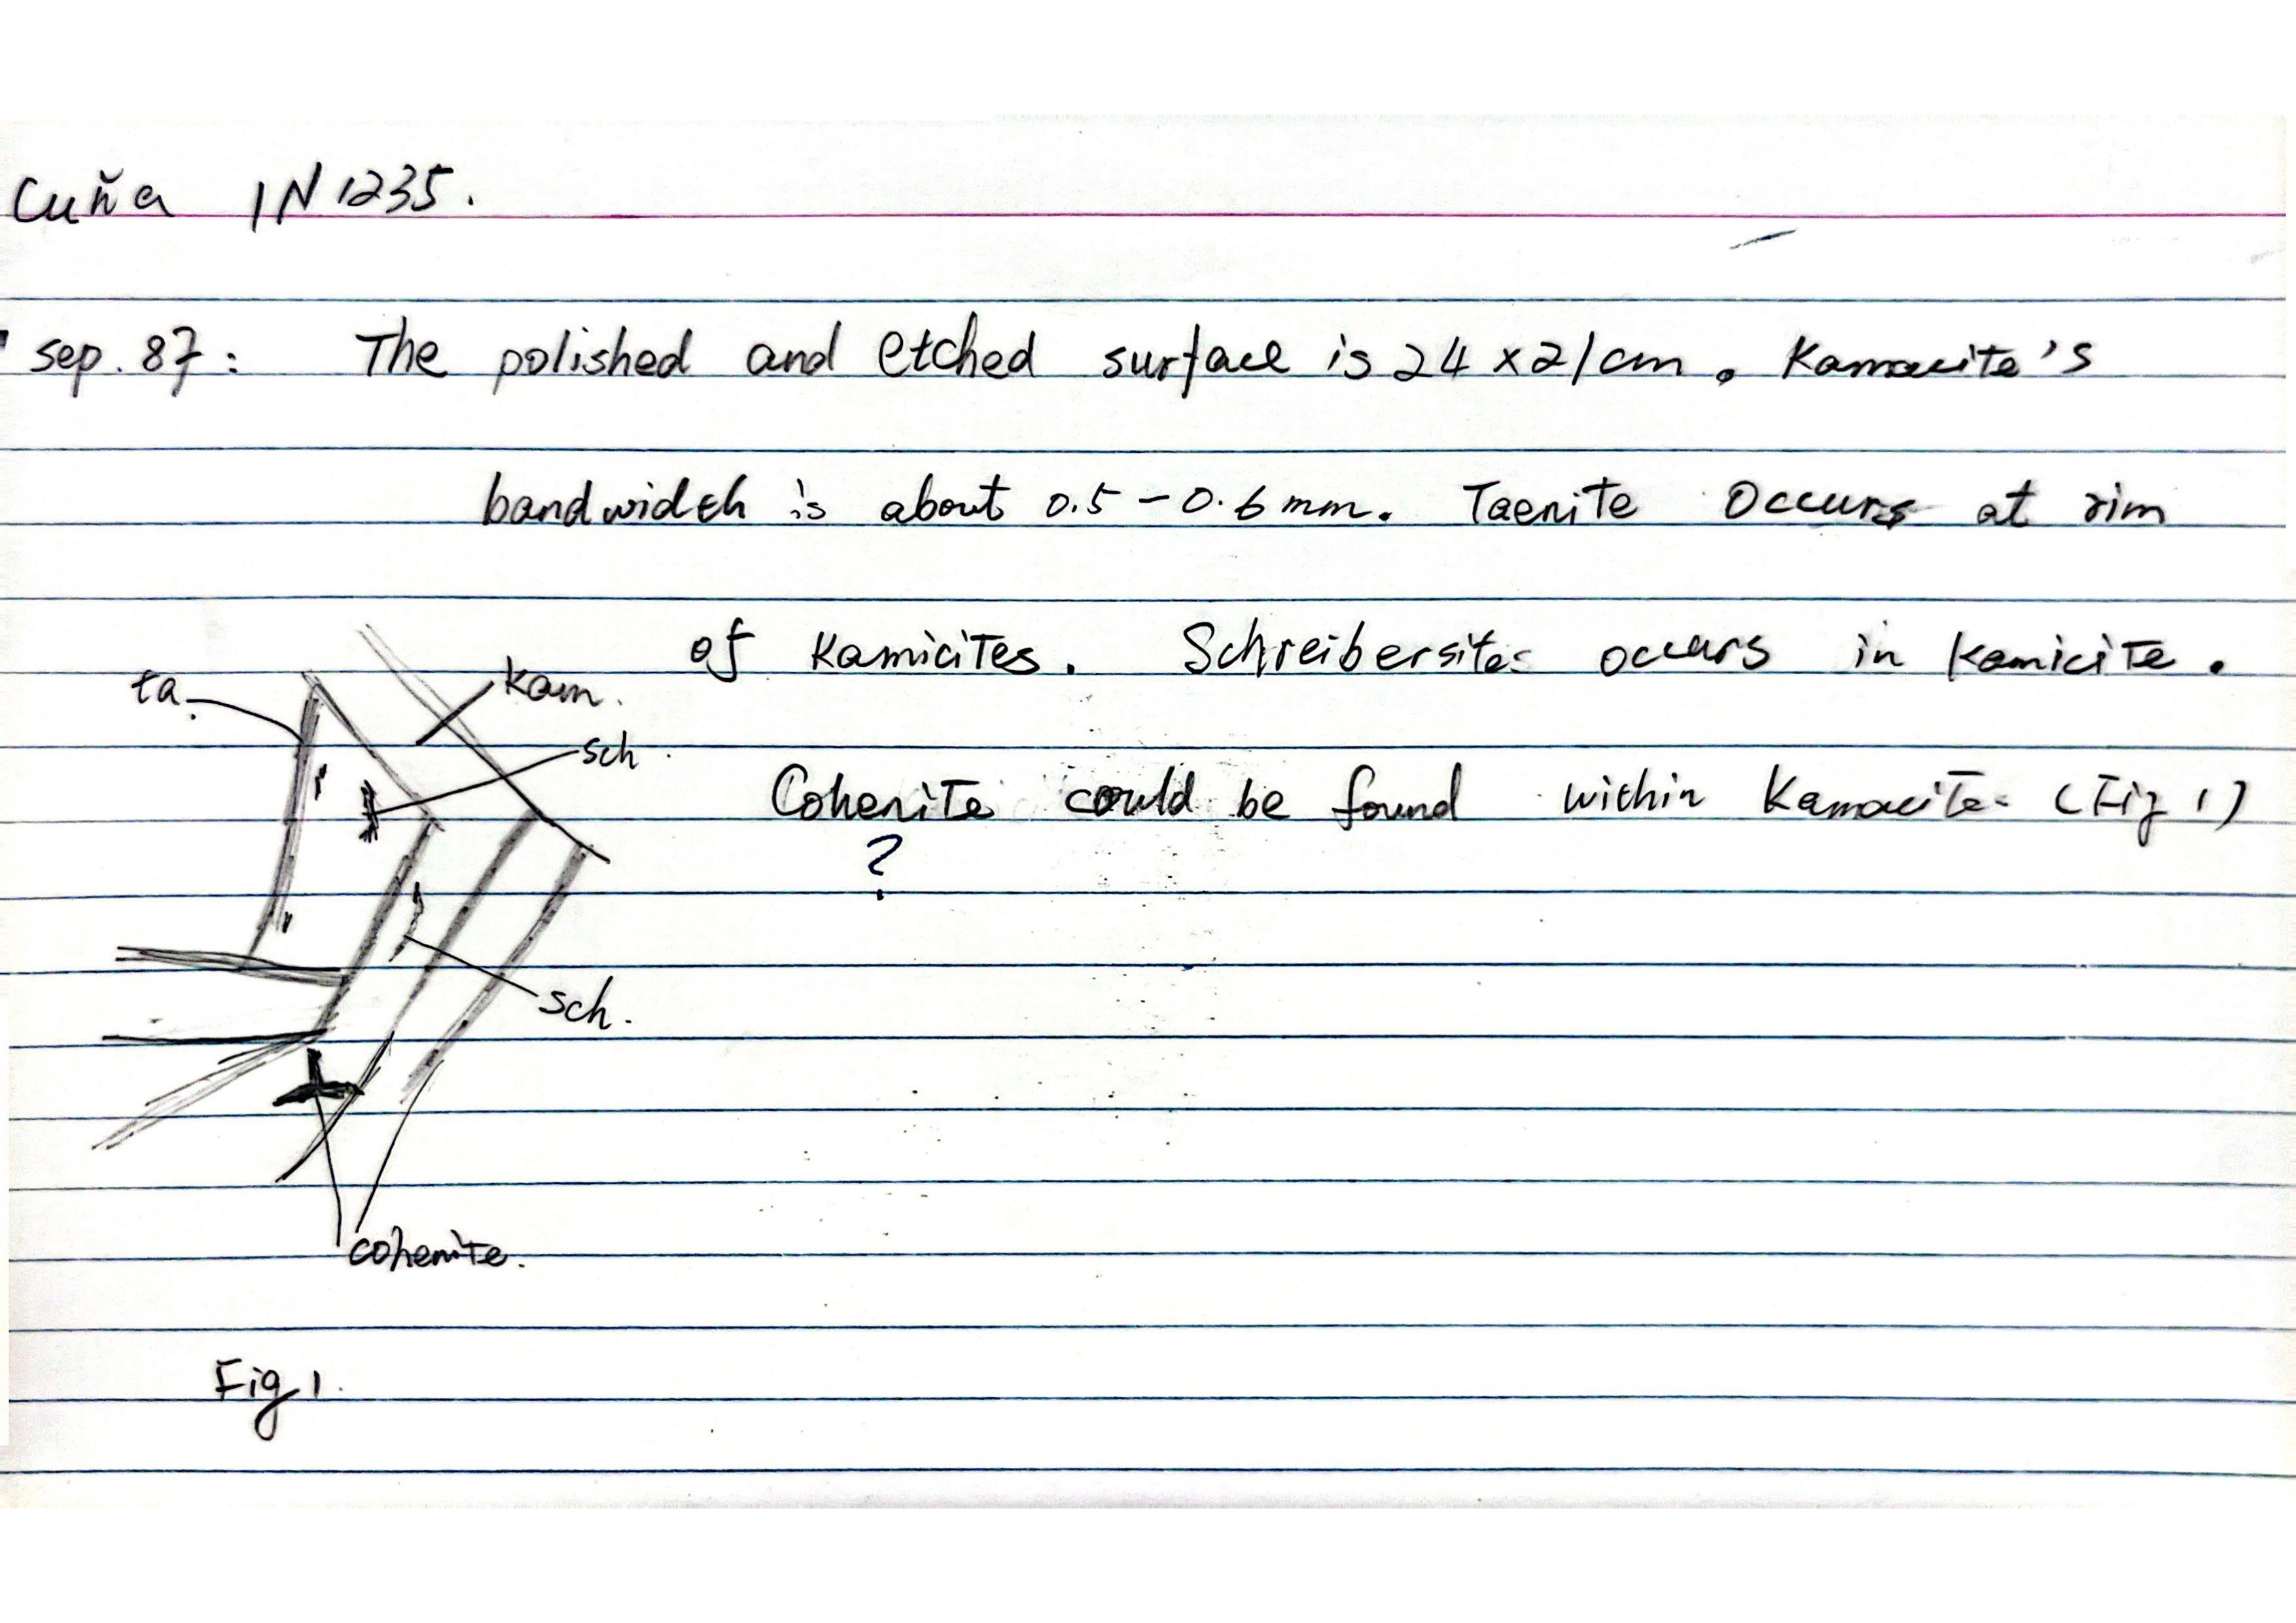 Cuña IN1235.
sep. 87: The polished and etched surface is 24 x 21 cm. Kamacite's
bandwidth is about 0.5 - 0.6 mm. Taenite occurs at rim
of Kamicites. Schreibersite occurs in Kamicite.
ta.
kam.
sch.
Cohenite could be found within Kamacite (Fig 1)
?
sch.
cohenite.
Fig 1.